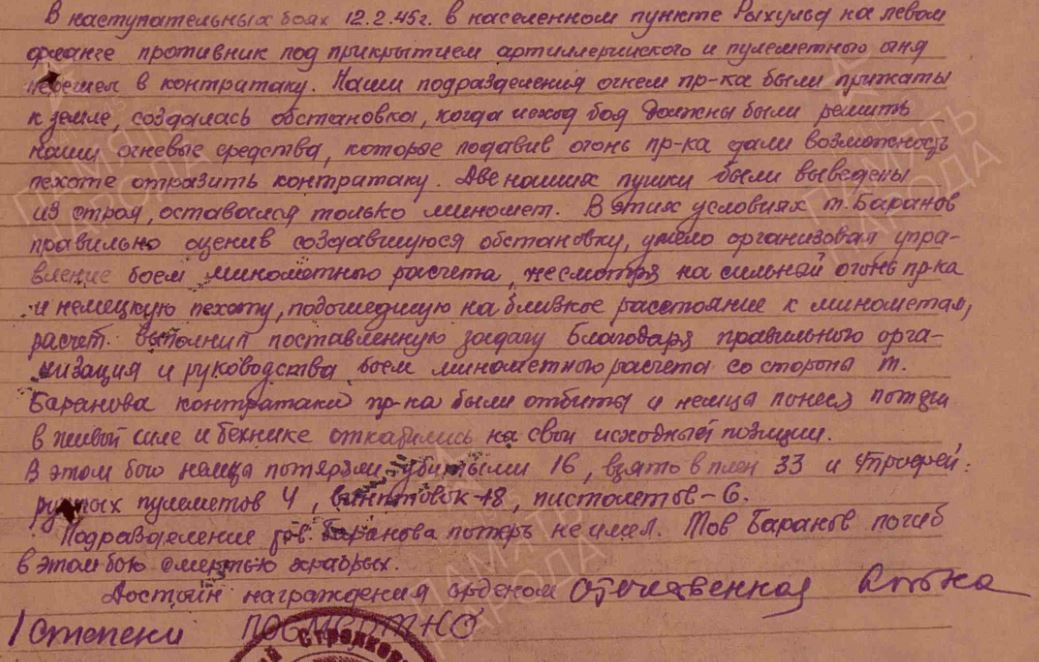 В наступательных боях 12.2.45г. в населенном пункте Рыхульд на левом
фланге противник под прикрытием артиллерийского и пулеметного огня
перешел в контратаку. Наши подразделения огнем пр-ка были прижаты
к земле, создалась обстановка, когда исход боя должны были решить
наши огневые средства, которые подавив огонь пр-ка дали возможность
пехоте отразить контратаку. Две наших пушки были выведены
из строя, оставался только миномет. В этих условиях т. Баранов
правильно оценив создавшуюся обстановку, умело организовал упра-
вление боем минометного расчета, несмотря на сильной огонь пр-ка
и немецкую пехоту, подошедшую на близкое расстояние к минометам,
расчет выполнил поставленную задачу благодаря правильного орга-
низация и руководства боем минометного расчета со стороны т.
Баранова контратаки пр-ка были отбиты и немцы понеся потери
в живой силе и технике откатились на свои исходный позиции.
В этом бою немцы потеряли убитыми 16, взято в плен 33 и трофей:
ручных пулеметов 4, винттовок-18, пистолетов-6.
Подразделение тов. Баранова потерь не имел. Тов Баранов погиб
в этом бою смертью храбрых.
Достоин награждения орденом Отечественная Война
1 степени посмертно
Стрелков
ПАМЯТЬ
НАРОДА